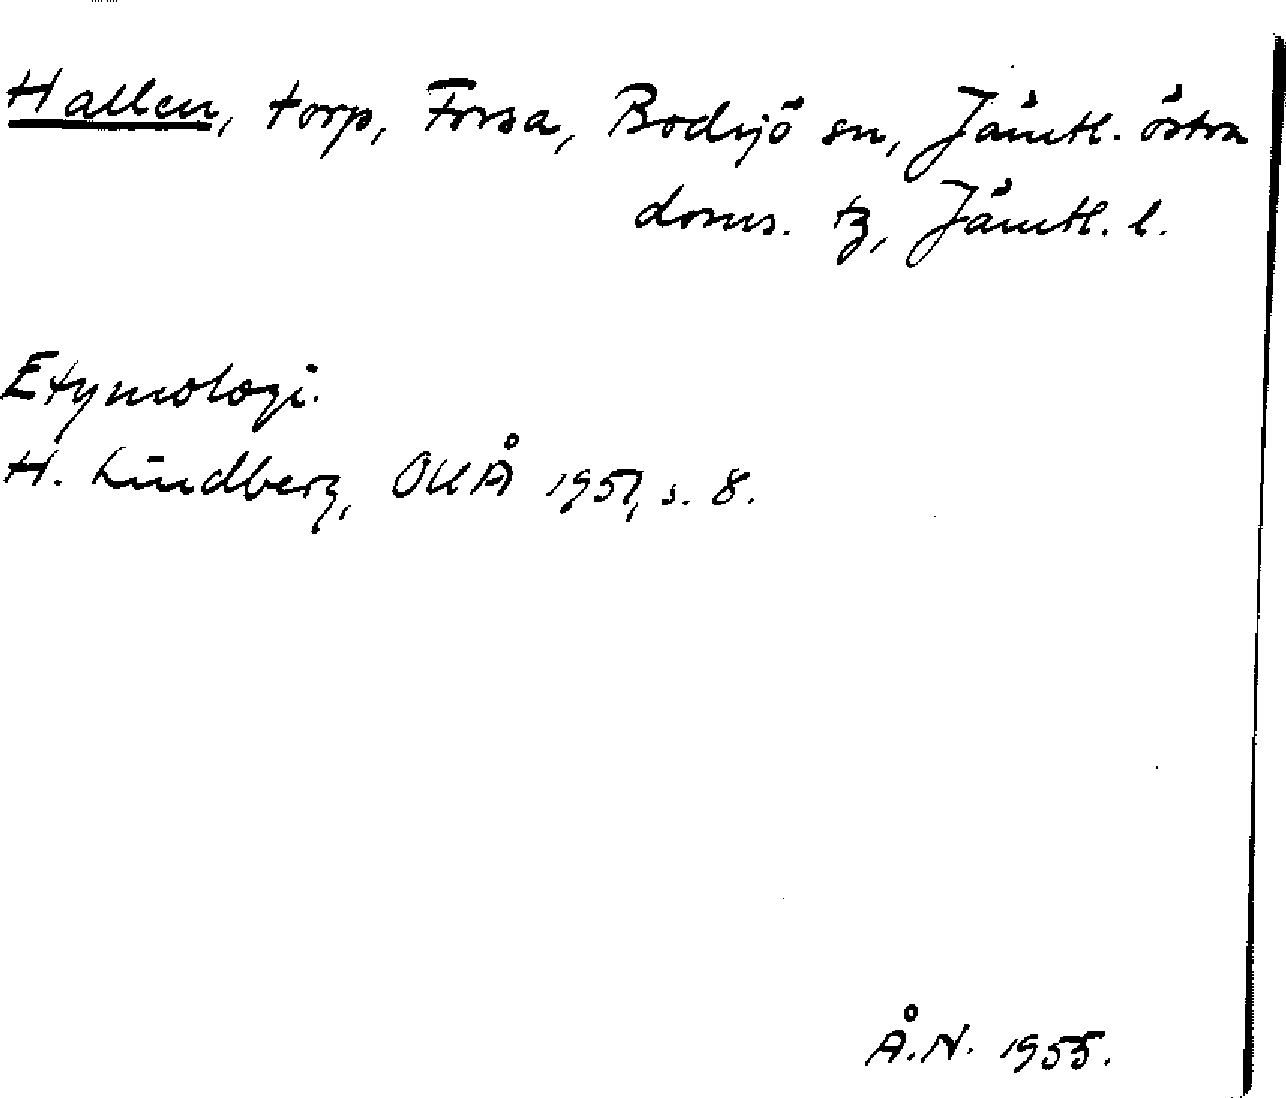 Hallen, torp, Forsa, Bodsjö sn, Jämtl. östra
doms. tg, Jämtl. l.
Etymologi.
H. Lindberg, OUÅ 1951, s. 8.
Å.N. 1955.